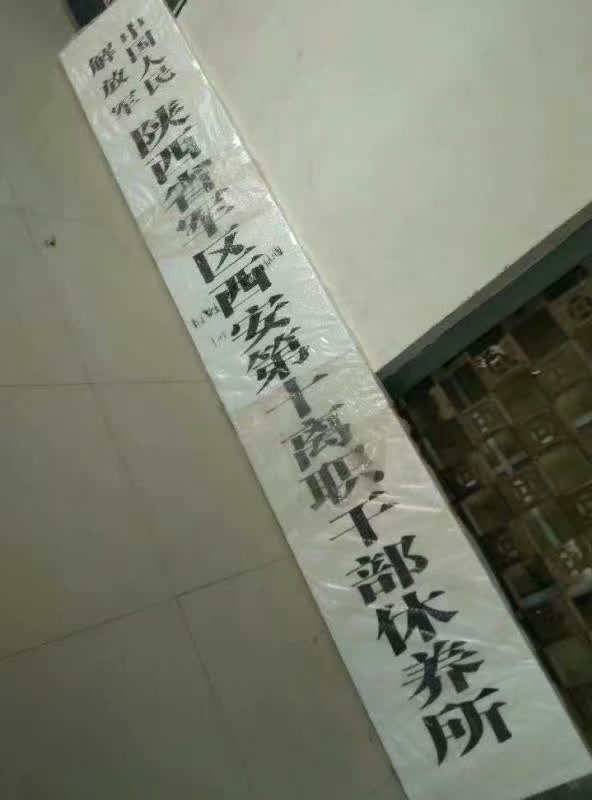 中国人民
解放军
陕西省军区西安第十离职干部休养所